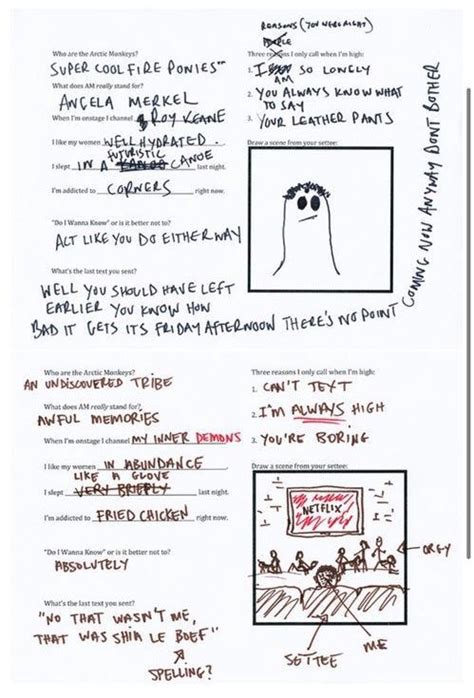 REASONS (YOU WERE RIGHT)
PEOPLE
Who are the Arctic Monkeys?
SUPER COOL FIRE PONIES
What does AM really stand for?
ANGELA MERKEL
When I'm onstage I channel ROY KEANE
I like my women WELL HYDRATED.
FUTURISTIC
I slept IN A CANOE CANOE last night.
I'm addicted to CORNERS right now.
"Do I Wanna Know" or is it better not to?
ACT LIKE YOU DO EITHER WAY
What's the last text you sent?
WELL YOU SHOULD HAVE LEFT
EARLIER YOU KNOW HOW
BAD IT GETS ITS FRIDAY AFTERNOON THERE'S NO POINT
COMING NOW ANYWAY DONT BOTHER
Three reasons I only call when I'm high:
1. I AM SO LONELY
2. YOU ALWAYS KNOW WHAT
TO SAY
3. YOUR LEATHER PANTS
Draw a scene from your settee:
Who are the Arctic Monkeys?
AN UNDISCOVERED TRIBE
What does AM really stand for?
AWFUL MEMORIES
When I'm onstage I channel MY INNER DEMONS
I like my women IN ABUNDANCE
LIKE A GLOVE
I slept VERY BRIEFLY last night.
I'm addicted to FRIED CHICKEN right now.
"Do I Wanna Know" or is it better not to?
ABSOLUTELY
What's the last text you sent?
"NO THAT WASN'T ME,
THAT WAS SHIA LE BOEF"
SPELLING?
Three reasons I only call when I'm high:
1. CAN'T TEXT
2. I'M ALWAYS HIGH
3. YOU'RE BORING
Draw a scene from your settee:
NETFLIX
ORGY
SETTEE
ME